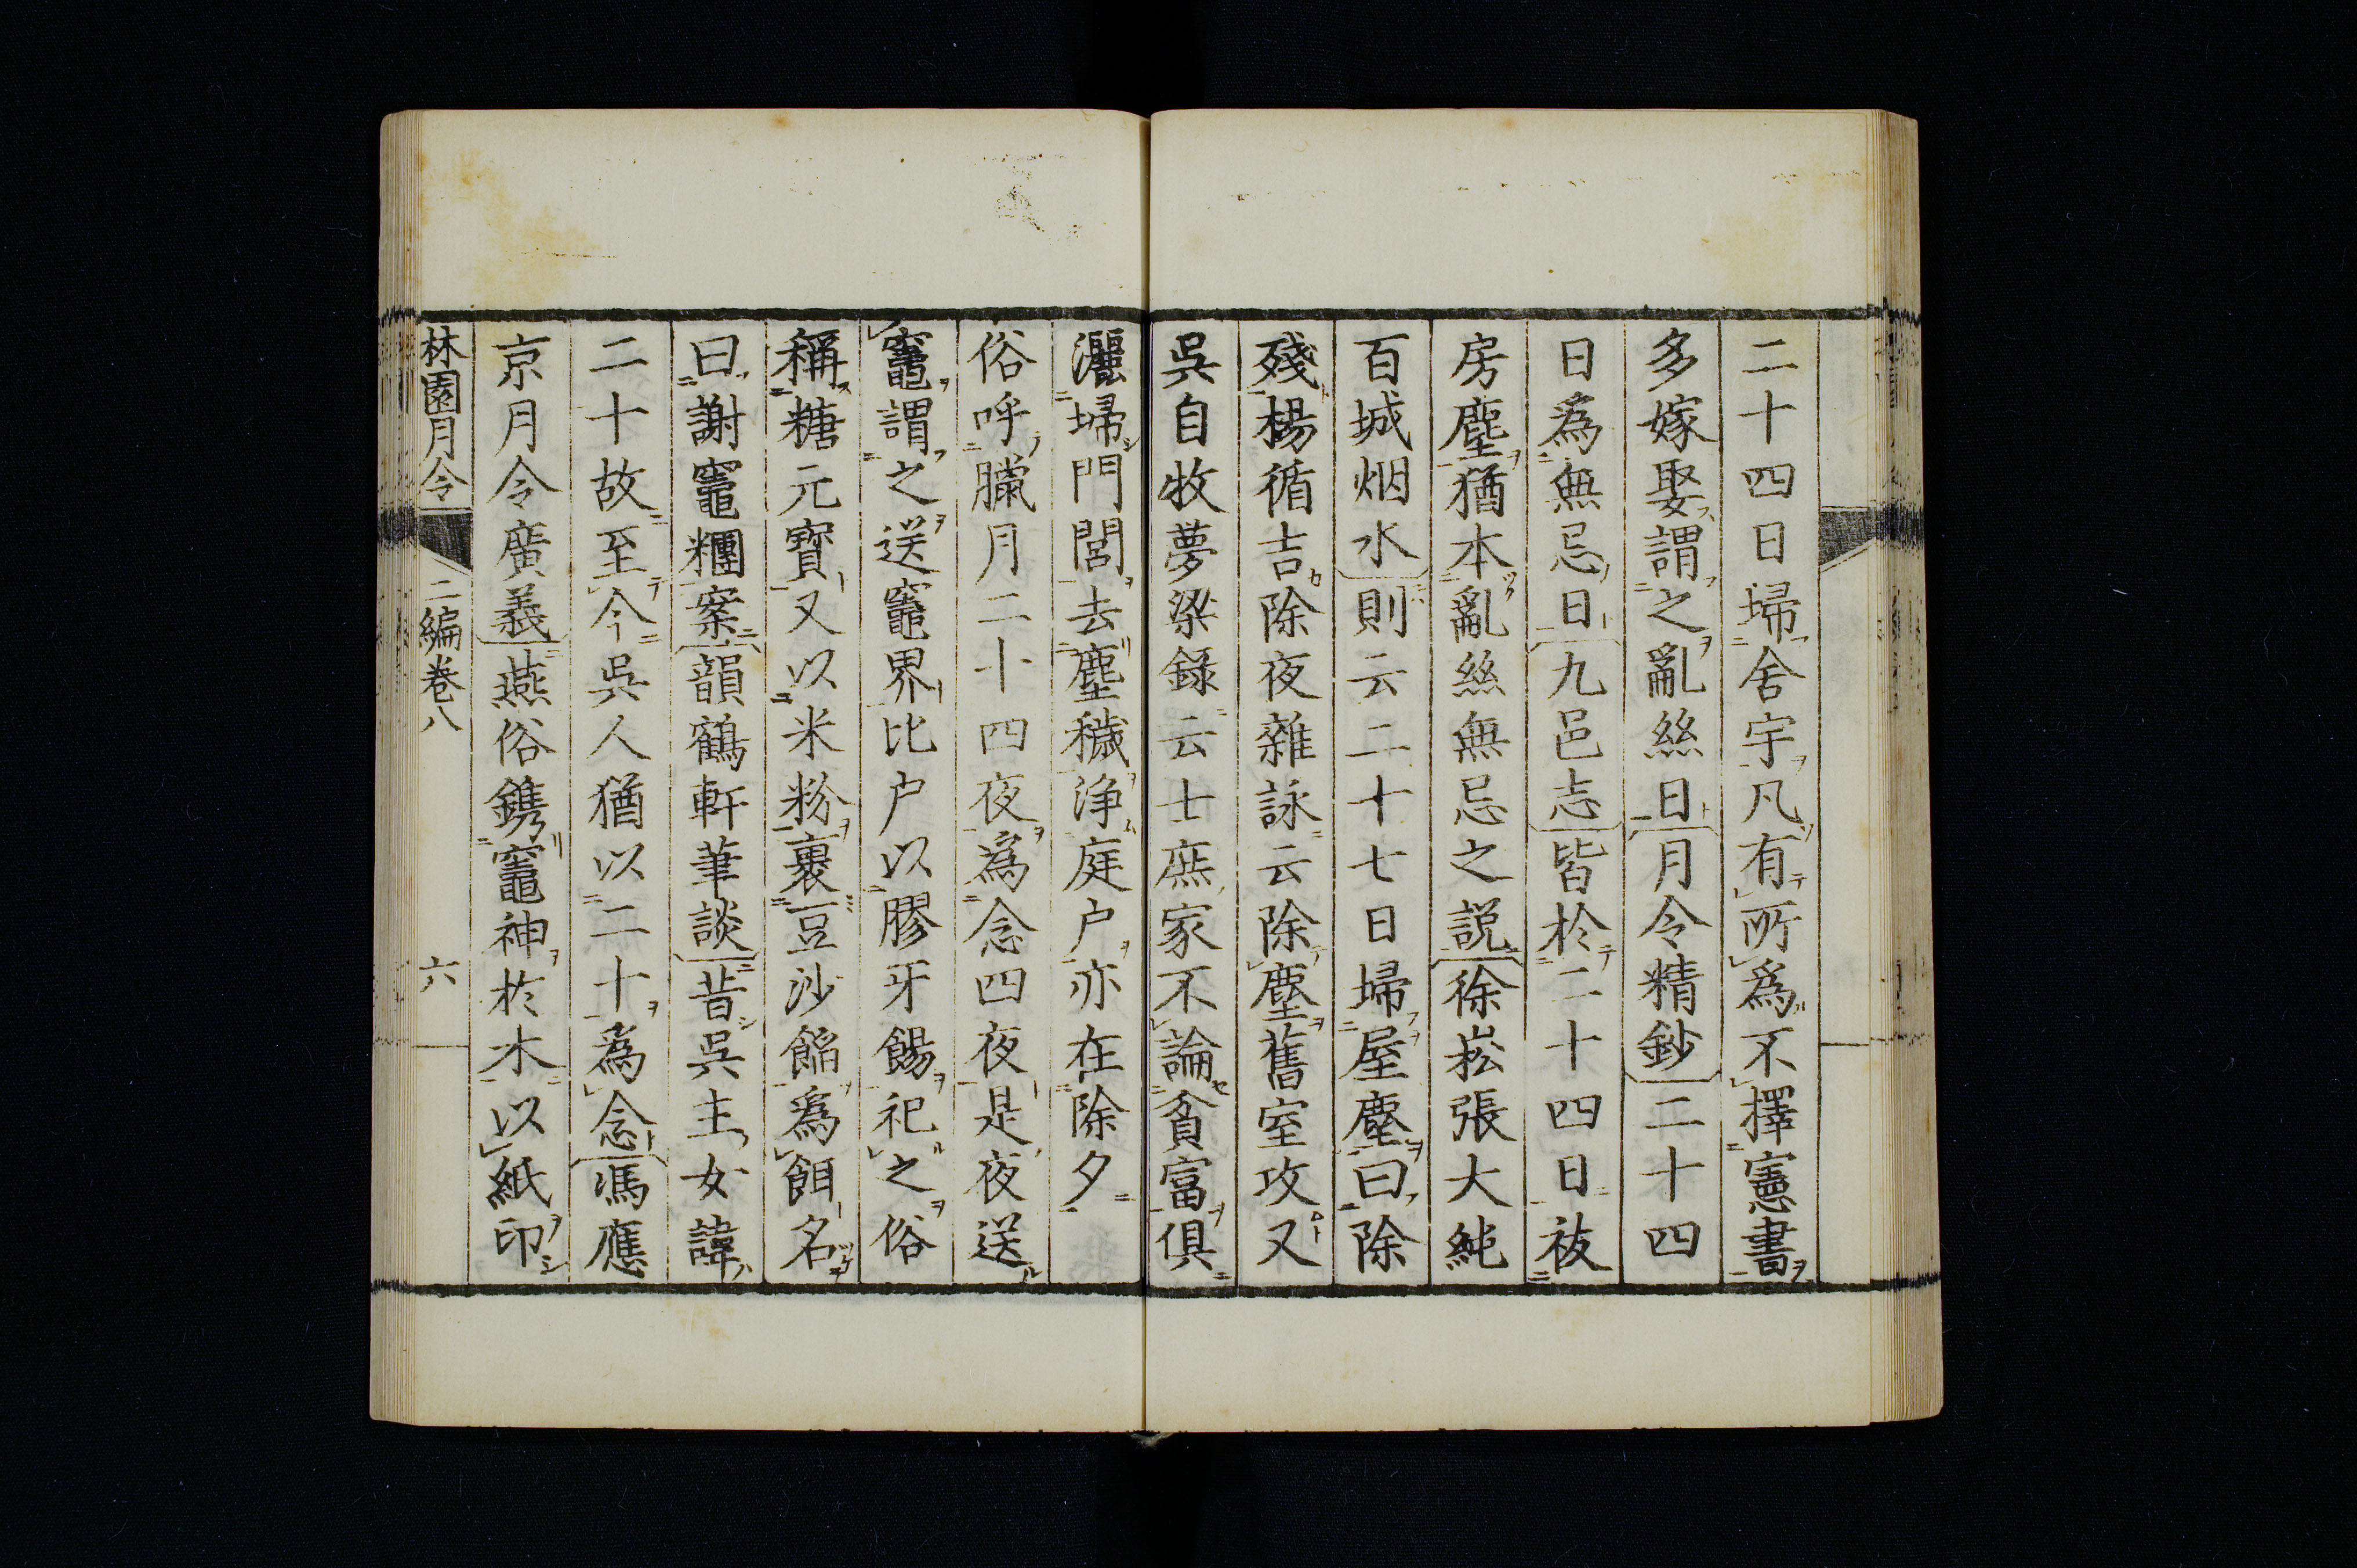 二十四日埽舍宇凡有所爲不擇憲書
多嫁娶謂之亂絲日月令精鈔二十四
日爲無忌日九邑志皆於二十四日祓
房塵猶本亂絲無忌之説徐崧張大純
百城烟水則云二十七日埽屋塵曰除
殘楊循吉除夜雜詠云除塵舊室攻又
吳自牧夢梁録云士庶家不論貧富俱
灑埽門閭去塵穢浄庭户亦在除夕
俗呼臘月二十四夜爲念四夜是夜送
竈謂之送竈界比户以膠牙餳祀之俗
稱糖元寶又以米粉裹豆沙餡爲餌名
曰謝竈糰案韻鶴軒筆談昔吳主女諱
二十故至今吳人猶以二十爲念馮應
京月令廣義燕俗鐫竈神於木以紙印
林園月令 二編卷八 六